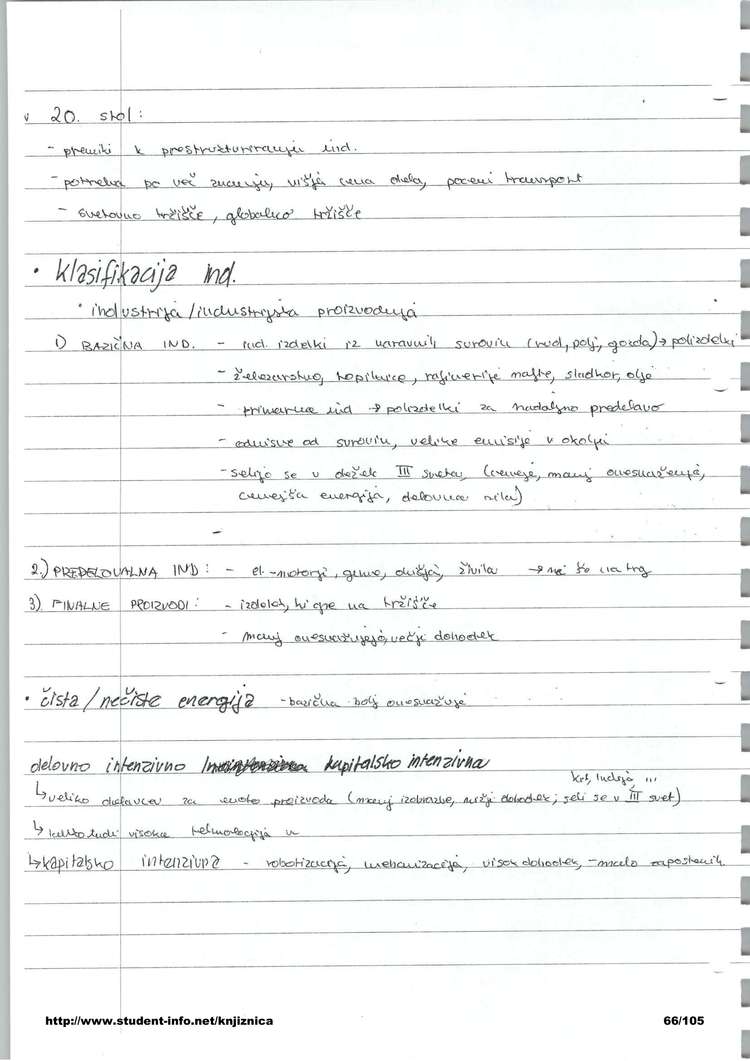 v 20. stol:
- premiki k prestrukturiranju ind.
- potreba po več znanju, višja cena dela, poceni transport
- svetovno tržišče, globalno tržišče
• klasifikacija ind.
• industrija / industrijska proizvodnja
1) BAZIČNA IND. - ind. izdelki iz naravnih surovin (rud, polj, gozda) → polizdelki
- železarstvo, topilnice, rafinerije nafte, sladkor, olje
- primarna ind → polizdelki za nadaljno predelavo
- odvisne od surovin, velike emisije v okolju
- selijo se v dežek III sveta, (ceneje, manj onesnaženja,
cenejša energija, delovna sila)
-
2.) PREDELOVALNA IND: - el.-motorji, gume, živila → na trg
3) FINALNE PROIZVODI: - izdelek, ki gre na tržišče
- manj onesnažujejo, večji dohodek
• čista / nečista energija - bazična bolj onesnažuje
delovno intenzivno kapitalsko intenzivna
krt, Indija ...
↳ veliko delavcev za enoto proizvoda (manj izobrazbe, nižji dohodek; seli se v III svet)
↳ lahko tudi visoka tehnologija
↳ kapitalsko intenzivna - robotizacija, mehanizacija, visok dohodek, - malo zaposlenih
http://www.student-info.net/knjiznica 66/105